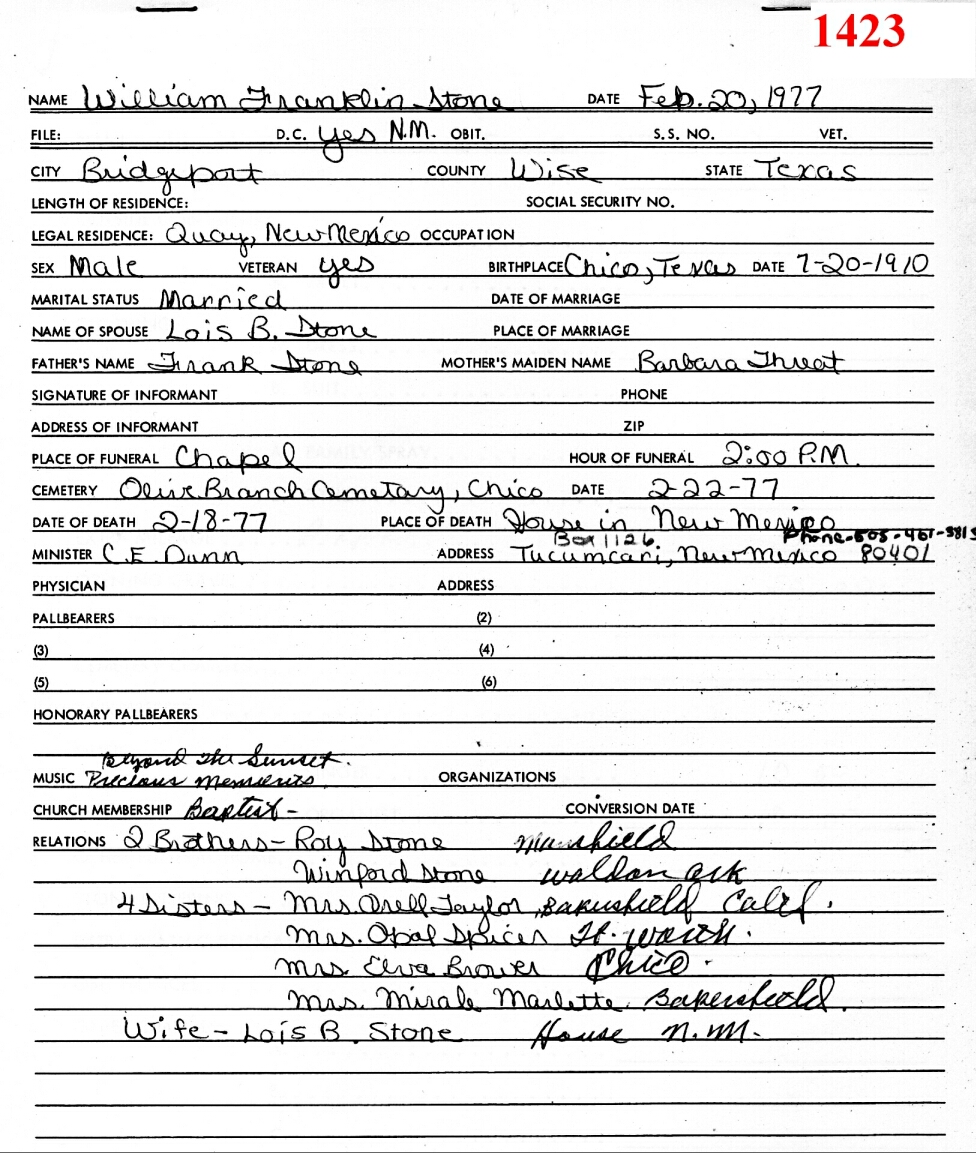 1423
NAME William Franklin Stone DATE Feb. 20, 1977
FILE: D.C. yes N.M. OBIT. S.S. NO. VET.
CITY Bridgeport COUNTY Wise STATE Texas
LENGTH OF RESIDENCE: SOCIAL SECURITY NO.
LEGAL RESIDENCE: Quay, New Mexico OCCUPATION
SEX Male VETERAN yes BIRTHPLACE Chico, Texas DATE 7-20-1910
MARITAL STATUS Married DATE OF MARRIAGE
NAME OF SPOUSE Lois B. Stone PLACE OF MARRIAGE
FATHER'S NAME Frank Stone MOTHER'S MAIDEN NAME Barbara Threat
SIGNATURE OF INFORMANT PHONE
ADDRESS OF INFORMANT ZIP
PLACE OF FUNERAL Chapel HOUR OF FUNERAL 2:00 P.M.
CEMETERY Olive Branch Cemetary, Chico DATE 2-22-77
DATE OF DEATH 2-18-77 PLACE OF DEATH House in New Mexico
Box 1126 Phone-505-461-3813
MINISTER C.E. Dunn ADDRESS Tucumcari, New Mexico 80401
PHYSICIAN ADDRESS
PALLBEARERS (2)
(3) (4)
(5) (6)
HONORARY PALLBEARERS
Beyond the Sunset.
MUSIC Precious Memories ORGANIZATIONS
CHURCH MEMBERSHIP Baptist - CONVERSION DATE
RELATIONS 2 Brothers - Roy Stone Mansfield
Winford Stone Waldon Ark
4 Sisters - Mrs. Orell Taylor, Bakersfield Calif.
Mrs. Opal Spicer Ft. Worth.
Mrs. Elva Brower Chico.
Mrs. Marlette Bakersfield.
Wife - Lois B. Stone House N.M.